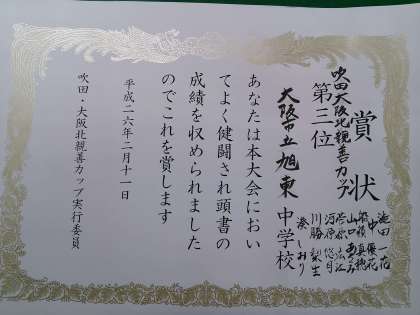 賞状
吹田大阪北親善カップ
第三位
大阪市立旭東中学校
一花
中 優花
山口
真穂
河原 悠月
川勝 梨生
湊 しおり
あなたは本大会におい
てよく健闘され頭書の
成績を収められました
のでこれを賞します
平成二六年二月十一日
吹田・大阪北親善カップ実行委員